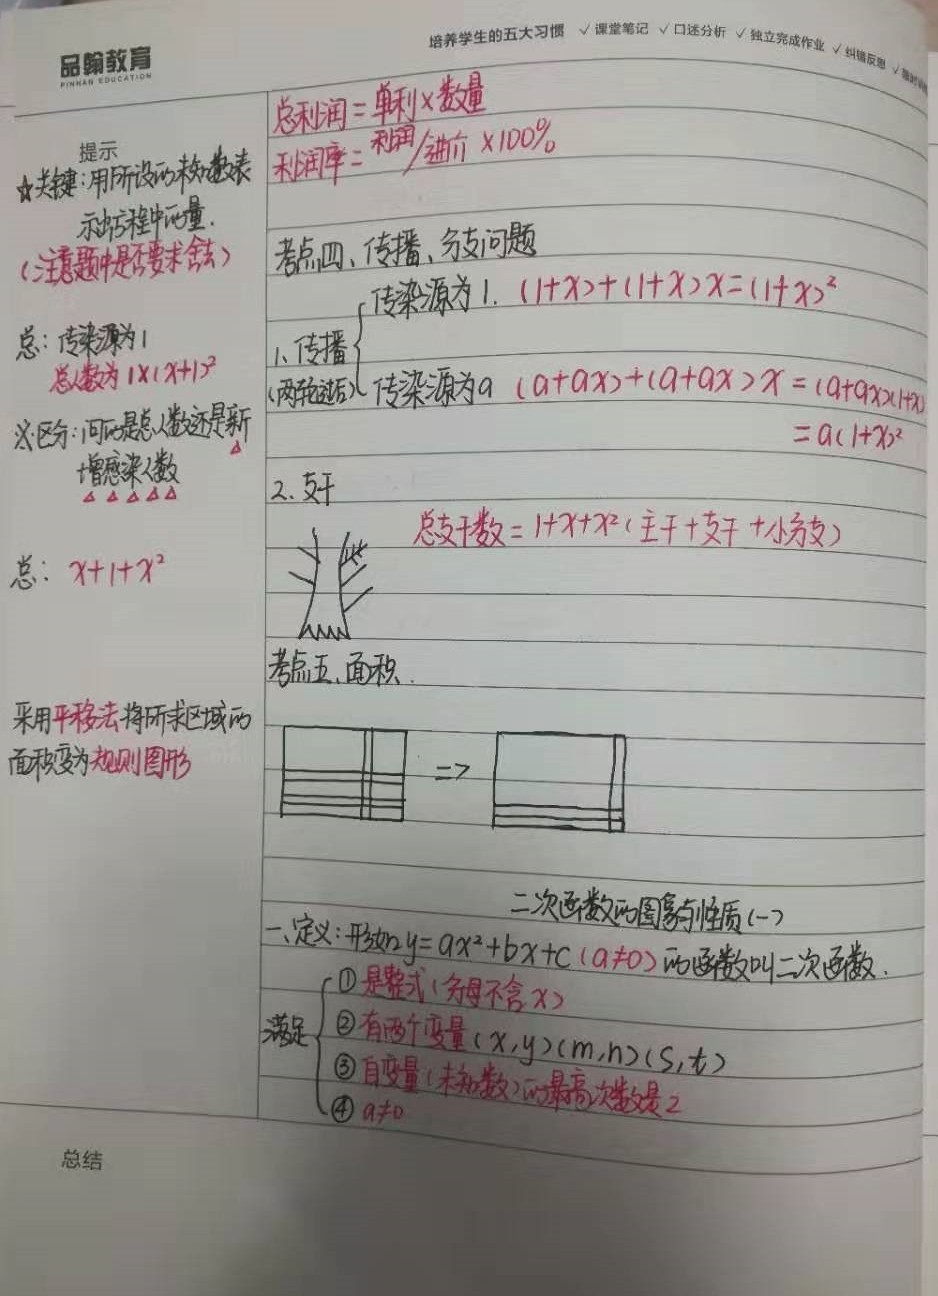 品翰教育
PINHAN EDUCATION
培养学生的五大习惯 ✓课堂笔记 ✓口述分析 ✓独立完成作业 ✓纠错反思 ✓
提示
☆关键:用所设的未知数表
示出方程中的量.
(注意题中是否要求舍去)
总:传染源为1
总人数为1×(x+1)²
※区分:问的是总人数还是新
增感染人数
总: x+1+x²
采用平移法将所求区域的
面积变为规则图形
总利润=单利×数量
利润率=利润/进价×100%
考点四、传播、分支问题
传染源为1. (1+x)+(1+x)x=(1+x)²
1.传播
(两轮过后)
传染源为a (a+ax)+(a+ax)x=(a+ax)(1+x)
=a(1+x)²
2.支干
总支干数=1+x+x²(主干+支干+小分支)
考点五、面积.
=>
二次函数的图象与性质(一)
一、定义:形如y=ax²+bx+c(a≠0)的函数叫二次函数.
满足
①是整式(分母不含x)
②有两个变量(x,y)(m,n)(s,t)
③自变量(未知数)的最高次数是2
④a≠0
总结